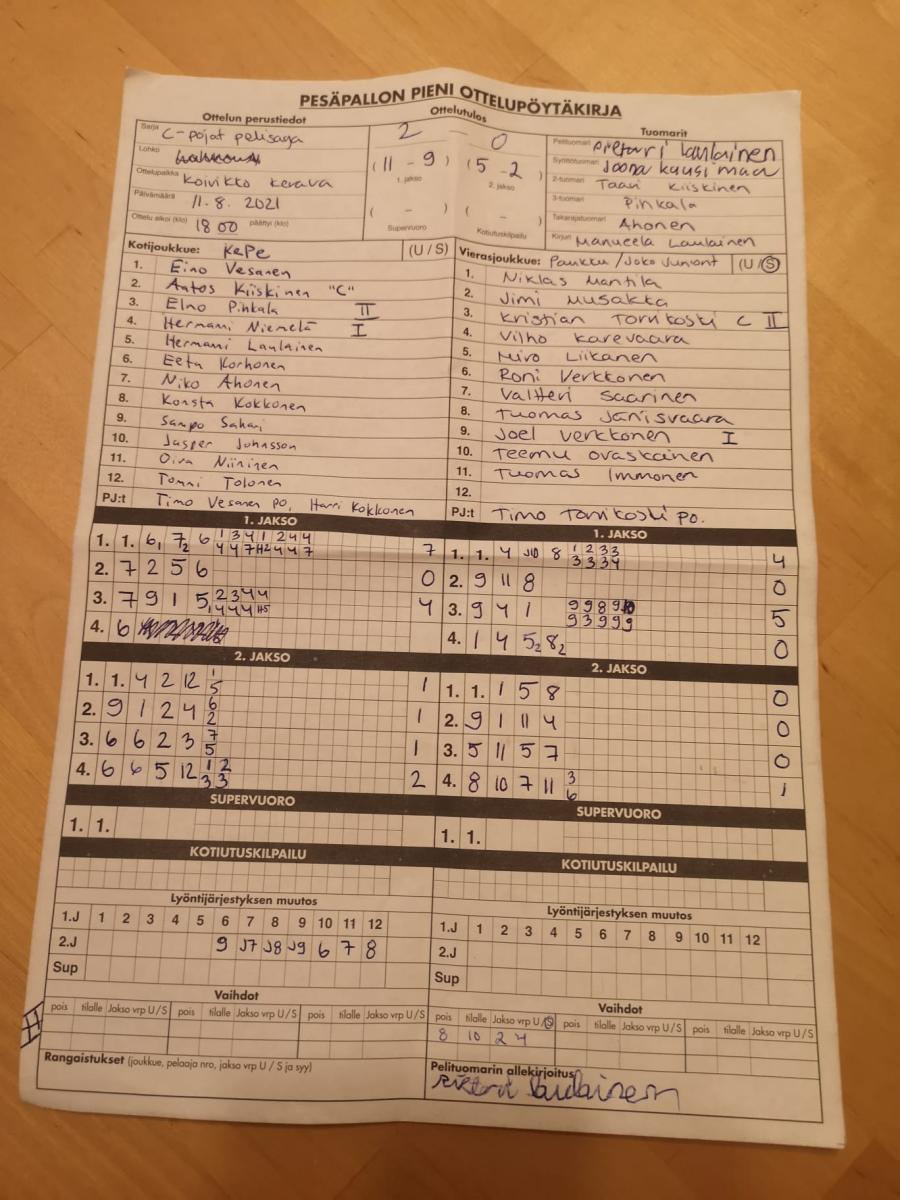 PESÄPALLON PIENI OTTELUPÖYTÄKIRJA
Ottelun perustiedot
Ottelutulos
Tuomarit
Sarja C-pojat pelisaga
Lohko
Ottelupaikka Koivikko Kerava
Päivämäärä 11.8.2021
Ottelu alkoi (klo) 18 00 päättyi (klo)
2 – 0
(11 – 9) (5 – 2)
1. jakso 2. jakso
( – ) ( – )
Supervuoro Kotiutuskilpailu
Pelituomari Pietari Laulainen
Syöttötuomari Joona Kuusimaa
2-tuomari Taavi Kiiskinen
3-tuomari Pinkala
Takarajatuomari Ahonen
Kirjuri Manueela Laulainen
Kotijoukkue: KePe (U / S)
1. Eino Vesanen
2. Antos Kiiskinen "C"
3. Elno Pinkala II
4. Hermanni Niemelä I
5. Hermanni Laulainen
6. Eetu Korhonen
7. Niko Ahonen
8. Konsta Kokkonen
9. Sampo Sahari
10. Jasper Johnsson
11. Oiva Niininen
12. Tommi Tolonen
PJ:t Timo Vesanen PO, Harri Kokkonen
Vierasjoukkue: Paukku / Joko Juniorit (U / S)
1. Niklas Mantila
2. Jimi Musakka
3. Kristian Tornikoski C II
4. Vilho Karevaara
5. Miro Liikanen
6. Roni Verkkonen
7. Valtteri Saarinen
8. Tuomas Jänisvaara
9. Joel Verkkonen I
10. Teemu Ovaskainen
11. Tuomas Immonen
12.
PJ:t Timo Tornikoski PO.
1. JAKSO
1. 1. 6, 7 2 6 1 3 4 1 2 4 4 7
4 4 7 H2 4 4 7
2. 7 2 5 6 0
3. 7 9 1 5, 2 3 4 4 4
4 4 4 H5
4. 6
1. JAKSO
1. 1. 4 J10 8 1 2 3 3 4
3 3 3 4
2. 9 11 8 0
3. 9 4 1 9 9 8 9 10 5
9 3 9 9 9
4. 1 4 5 2 8 2 0
2. JAKSO
1. 1. 4 2 12 1 1
5
2. 9 1 2 4 6 1
2
3. 6 6 2 3 7 1
5
4. 6 6 5 12 1 2 2
3 3
2. JAKSO
1. 1. 1 5 8 0
2. 9 1 11 4 0
3. 5 11 5 7 0
4. 8 10 7 11 3 1
6
SUPERVUORO
1. 1.
SUPERVUORO
1. 1.
KOTIUTUSKILPAILU
KOTIUTUSKILPAILU
Lyöntijärjestyksen muutos
1.J 1 2 3 4 5 6 7 8 9 10 11 12
2.J 9 J7 J8 J9 6 7 8
Sup
Lyöntijärjestyksen muutos
1.J 1 2 3 4 5 6 7 8 9 10 11 12
2.J
Sup
Vaihdot
pois tilalle Jakso vrp U / S pois tilalle Jakso vrp U / S pois tilalle Jakso vrp U / S
Vaihdot
pois tilalle Jakso vrp U / S pois tilalle Jakso vrp U / S pois tilalle Jakso vrp U / S
8 10 2 4
Rangaistukset (joukkue, pelaaja nro, jakso vrp U / S ja syy)
Pelituomarin allekirjoitus
Pietari Laulainen